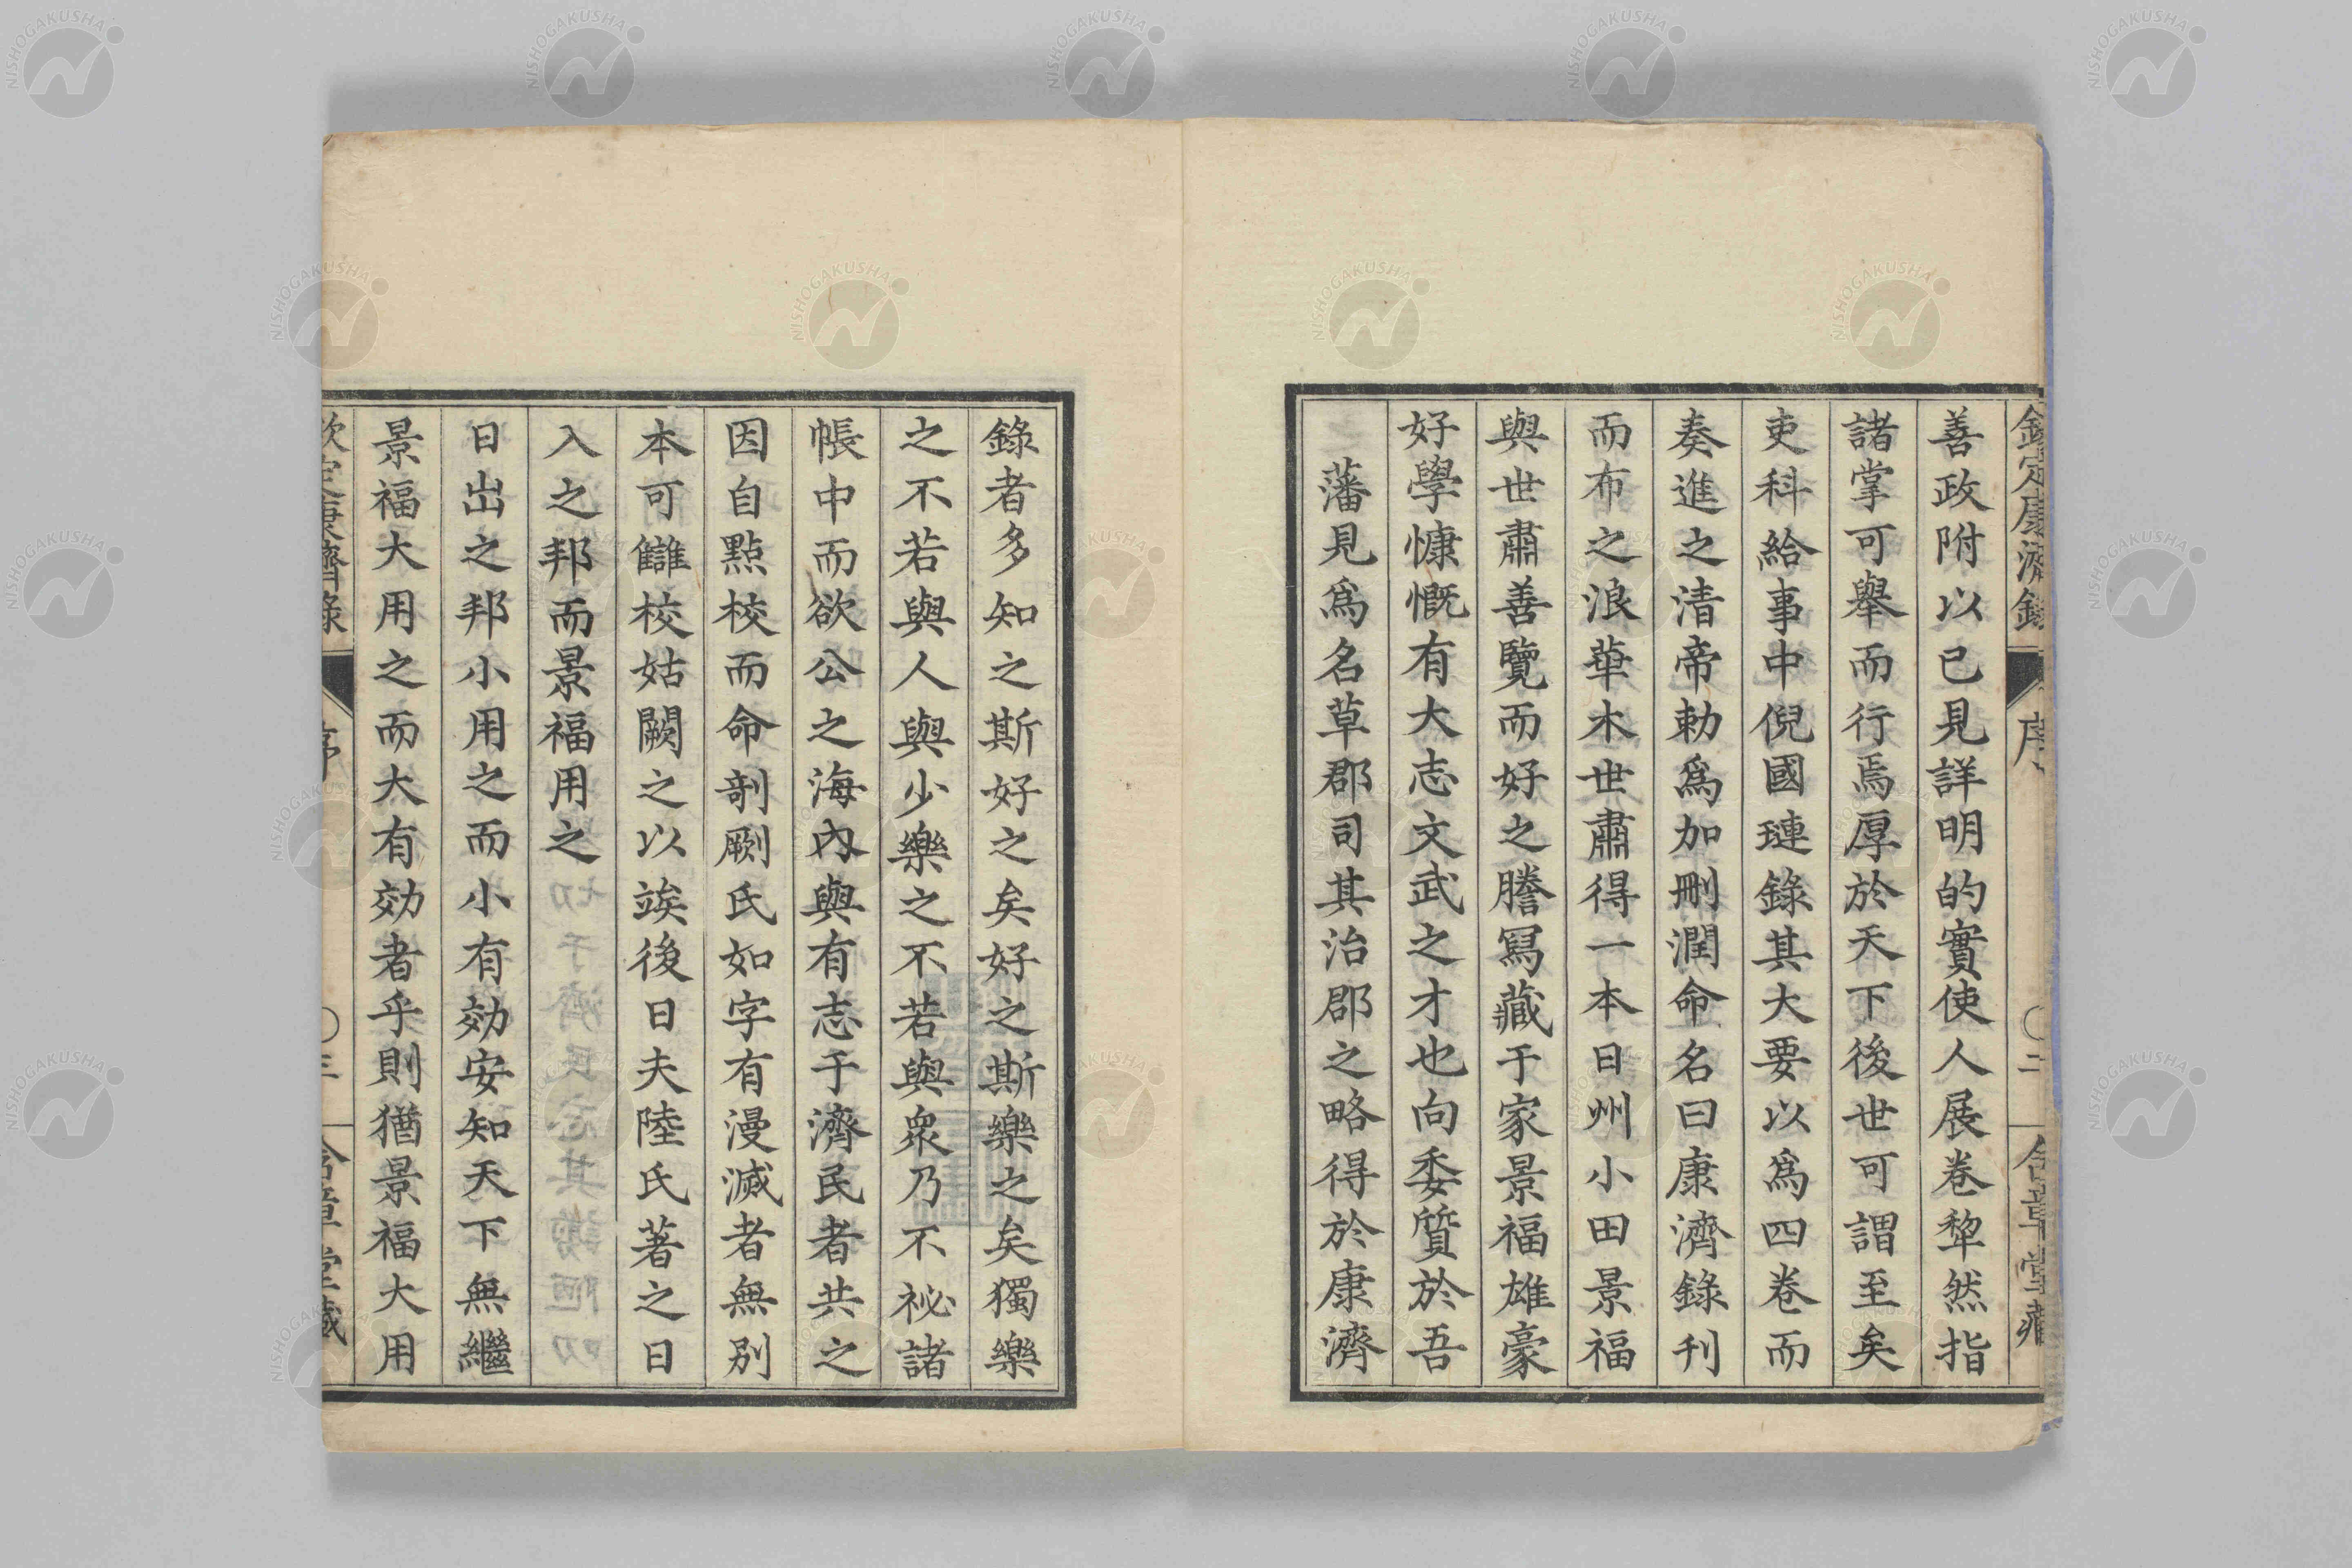 善政附以已見詳明的實使人展卷犂然指
諸掌可舉而行焉厚於天下後世可謂至矣
吏科給事中倪國璉錄其大要以爲四卷而
奏進之清帝勅爲加刪潤命名曰康濟錄刊
而布之浪華木世肅得一本日州小田景福
與世肅善覽而好之謄冩藏于家景福雄豪
好學慷慨有大志文武之才也向委質於吾
藩見爲名草郡司其治郡之略得於康濟
錄者多知之斯好之矣好之斯樂之矣獨樂
之不若與人與少樂之不若與衆乃不祕諸
帳中而欲公之海內與有志于濟民者共之
因自點校而命剞劂氏如字有漫滅者無別
本可讎校姑闕之以竢後日夫陸氏著之日
入之邦而景福用之
日出之邦小用之而小有効安知天下無繼
景福大用之而大有効者乎則猶景福大用
欽定康濟錄
序
〇二
含章堂藏
欽定康濟錄
序
〇三
含章堂藏
NISHOGAKUSHA